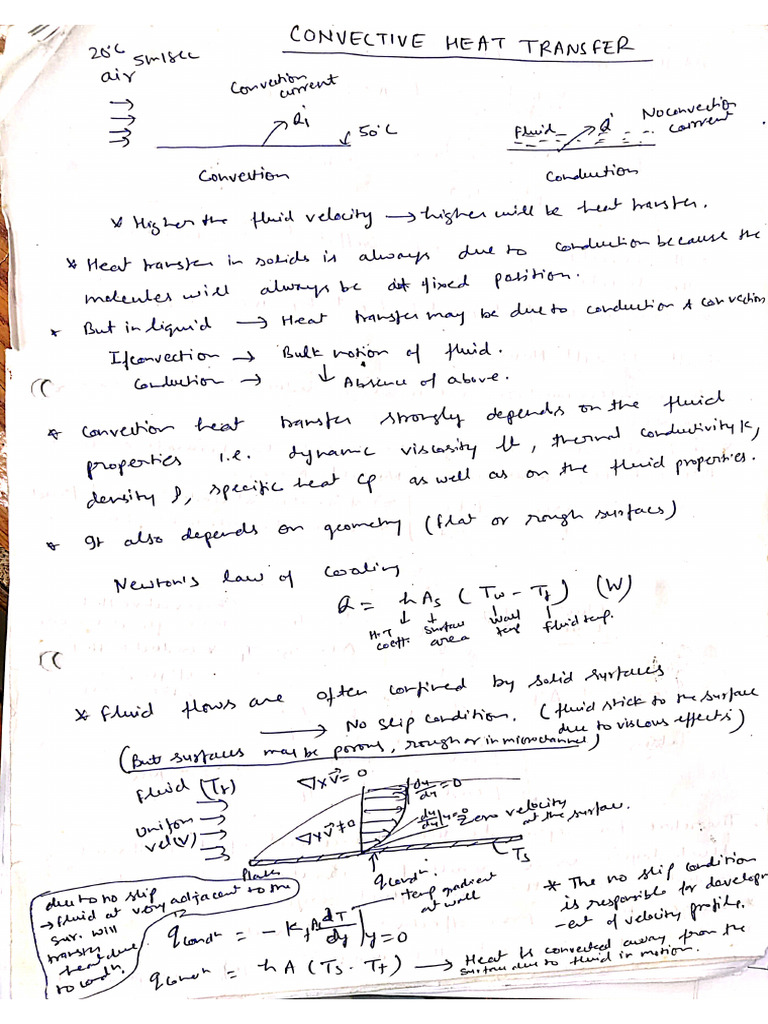 CONVECTIVE HEAT TRANSFER
20°C
air 5m/sec
Convection current
Q̇
50°C
Convection
Fluid
Q̇
No convection current
Conduction
* Higher the fluid velocity → higher will be heat transfer.
* Heat transfer in solids is always due to conduction because the
molecules will always be at fixed position.
* But in liquid → Heat transfer may be due to conduction & convection
If convection → Bulk motion of fluid.
Conduction → ↓ Absence of above.
* Convection heat transfer strongly depends on the fluid
properties i.e. dynamic viscosity μ, thermal conductivity K,
density ρ, specific heat Cp as well as on the fluid properties.
* It also depends on geometry (flat or rough surfaces)
Newton's law of cooling
Q = h As (Tw - Tf) (W)
H.T coeff. surface area wall temp fluid temp.
* Fluid flows are often confined by solid surfaces
→ No slip condition. (fluid stick to the surface
due to viscous effects)
(But surfaces may be porous, rough or in microchannel)
Fluid (Tf)
Uniform vel (V)
∇×V⃗ = 0
∇×V⃗ ≠ 0
du/dy = 0
du/dy|y=0
Zero velocity
at the surface.
Plate
Ts
qcondn
temp gradient
at wall
* The no slip condition
is responsible for developm
-ent of velocity profile.
due to no slip
→ fluid at very adjacent to the
sur. will
transfer
heat due
to condn.
qcondn = - Kf A dT/dy|y=0
qconvn = hA (Ts - Tf) → Heat is convected away from the
surface due to fluid in motion.